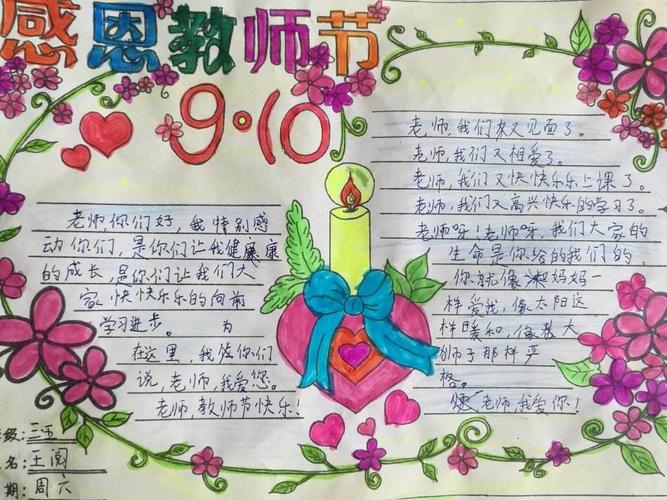 感恩教师节
9·10
老师,你们好,我特别感
动你们,是你们让我健康康
的成长,是你们让我们大
家快快乐乐的向前
学习进步。为
在这里,我
你们
说,老师,我爱您。
老师,教师节快乐!
老师,我们又见面了。
老师,我们又相爱了。
老师,我们又快快乐乐上课了。
老师,我们又高兴快乐的学习了。
老师呀!老师呀,我们大家的
生命是你给的我们的
你就像
妈妈一
样爱我,像太阳这
样暖和,像
大
狮子那样严
格。
老师,我爱你!
级:三五
名:王阅
期:周六